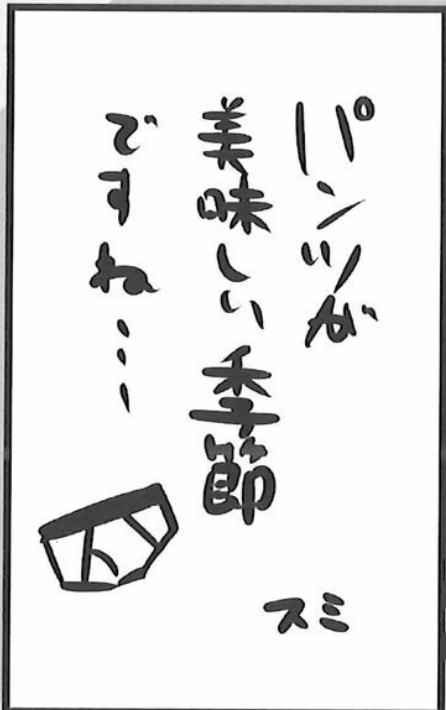 パンツが
美味しい季節
ですね…
スミ